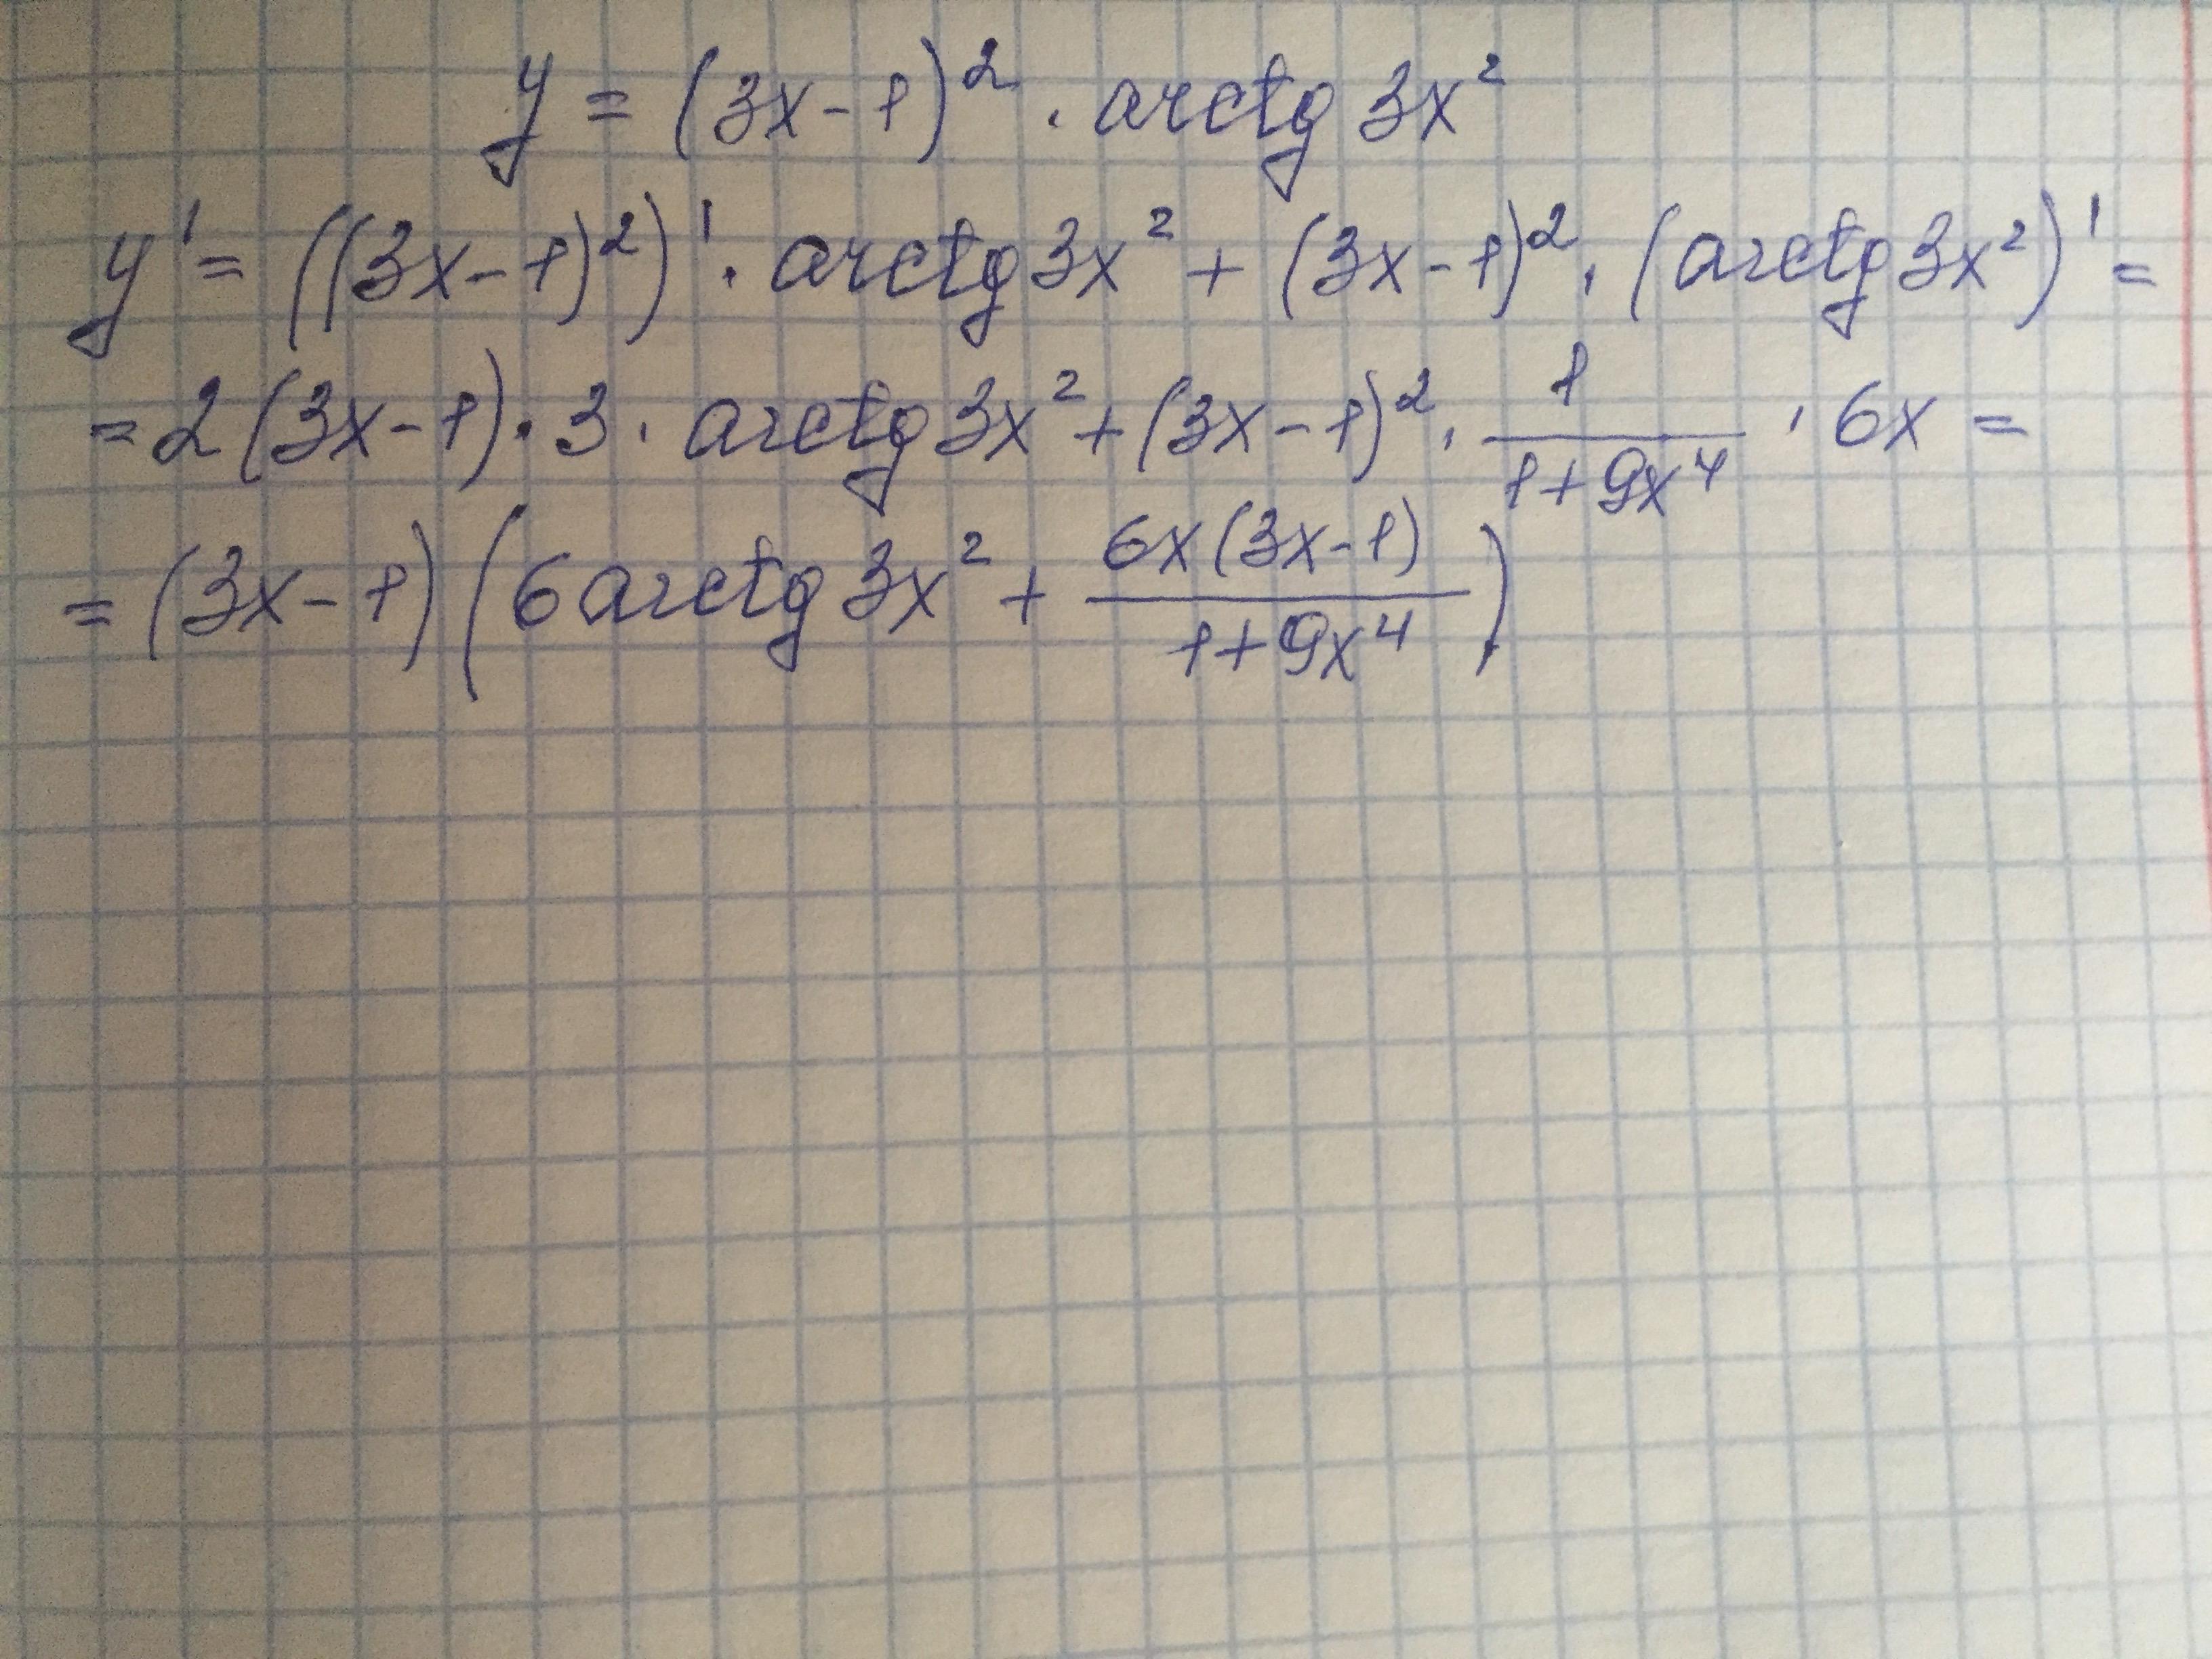 y = (3x-1)² · arctg 3x²
y' = ((3x-1)²)' · arctg 3x² + (3x-1)² · (arctg 3x²)' =
= 2(3x-1) · 3 · arctg 3x² + (3x-1)² · 1/(1+9x⁴) · 6x =
= (3x-1)(6 arctg 3x² + 6x(3x-1)/(1+9x⁴))